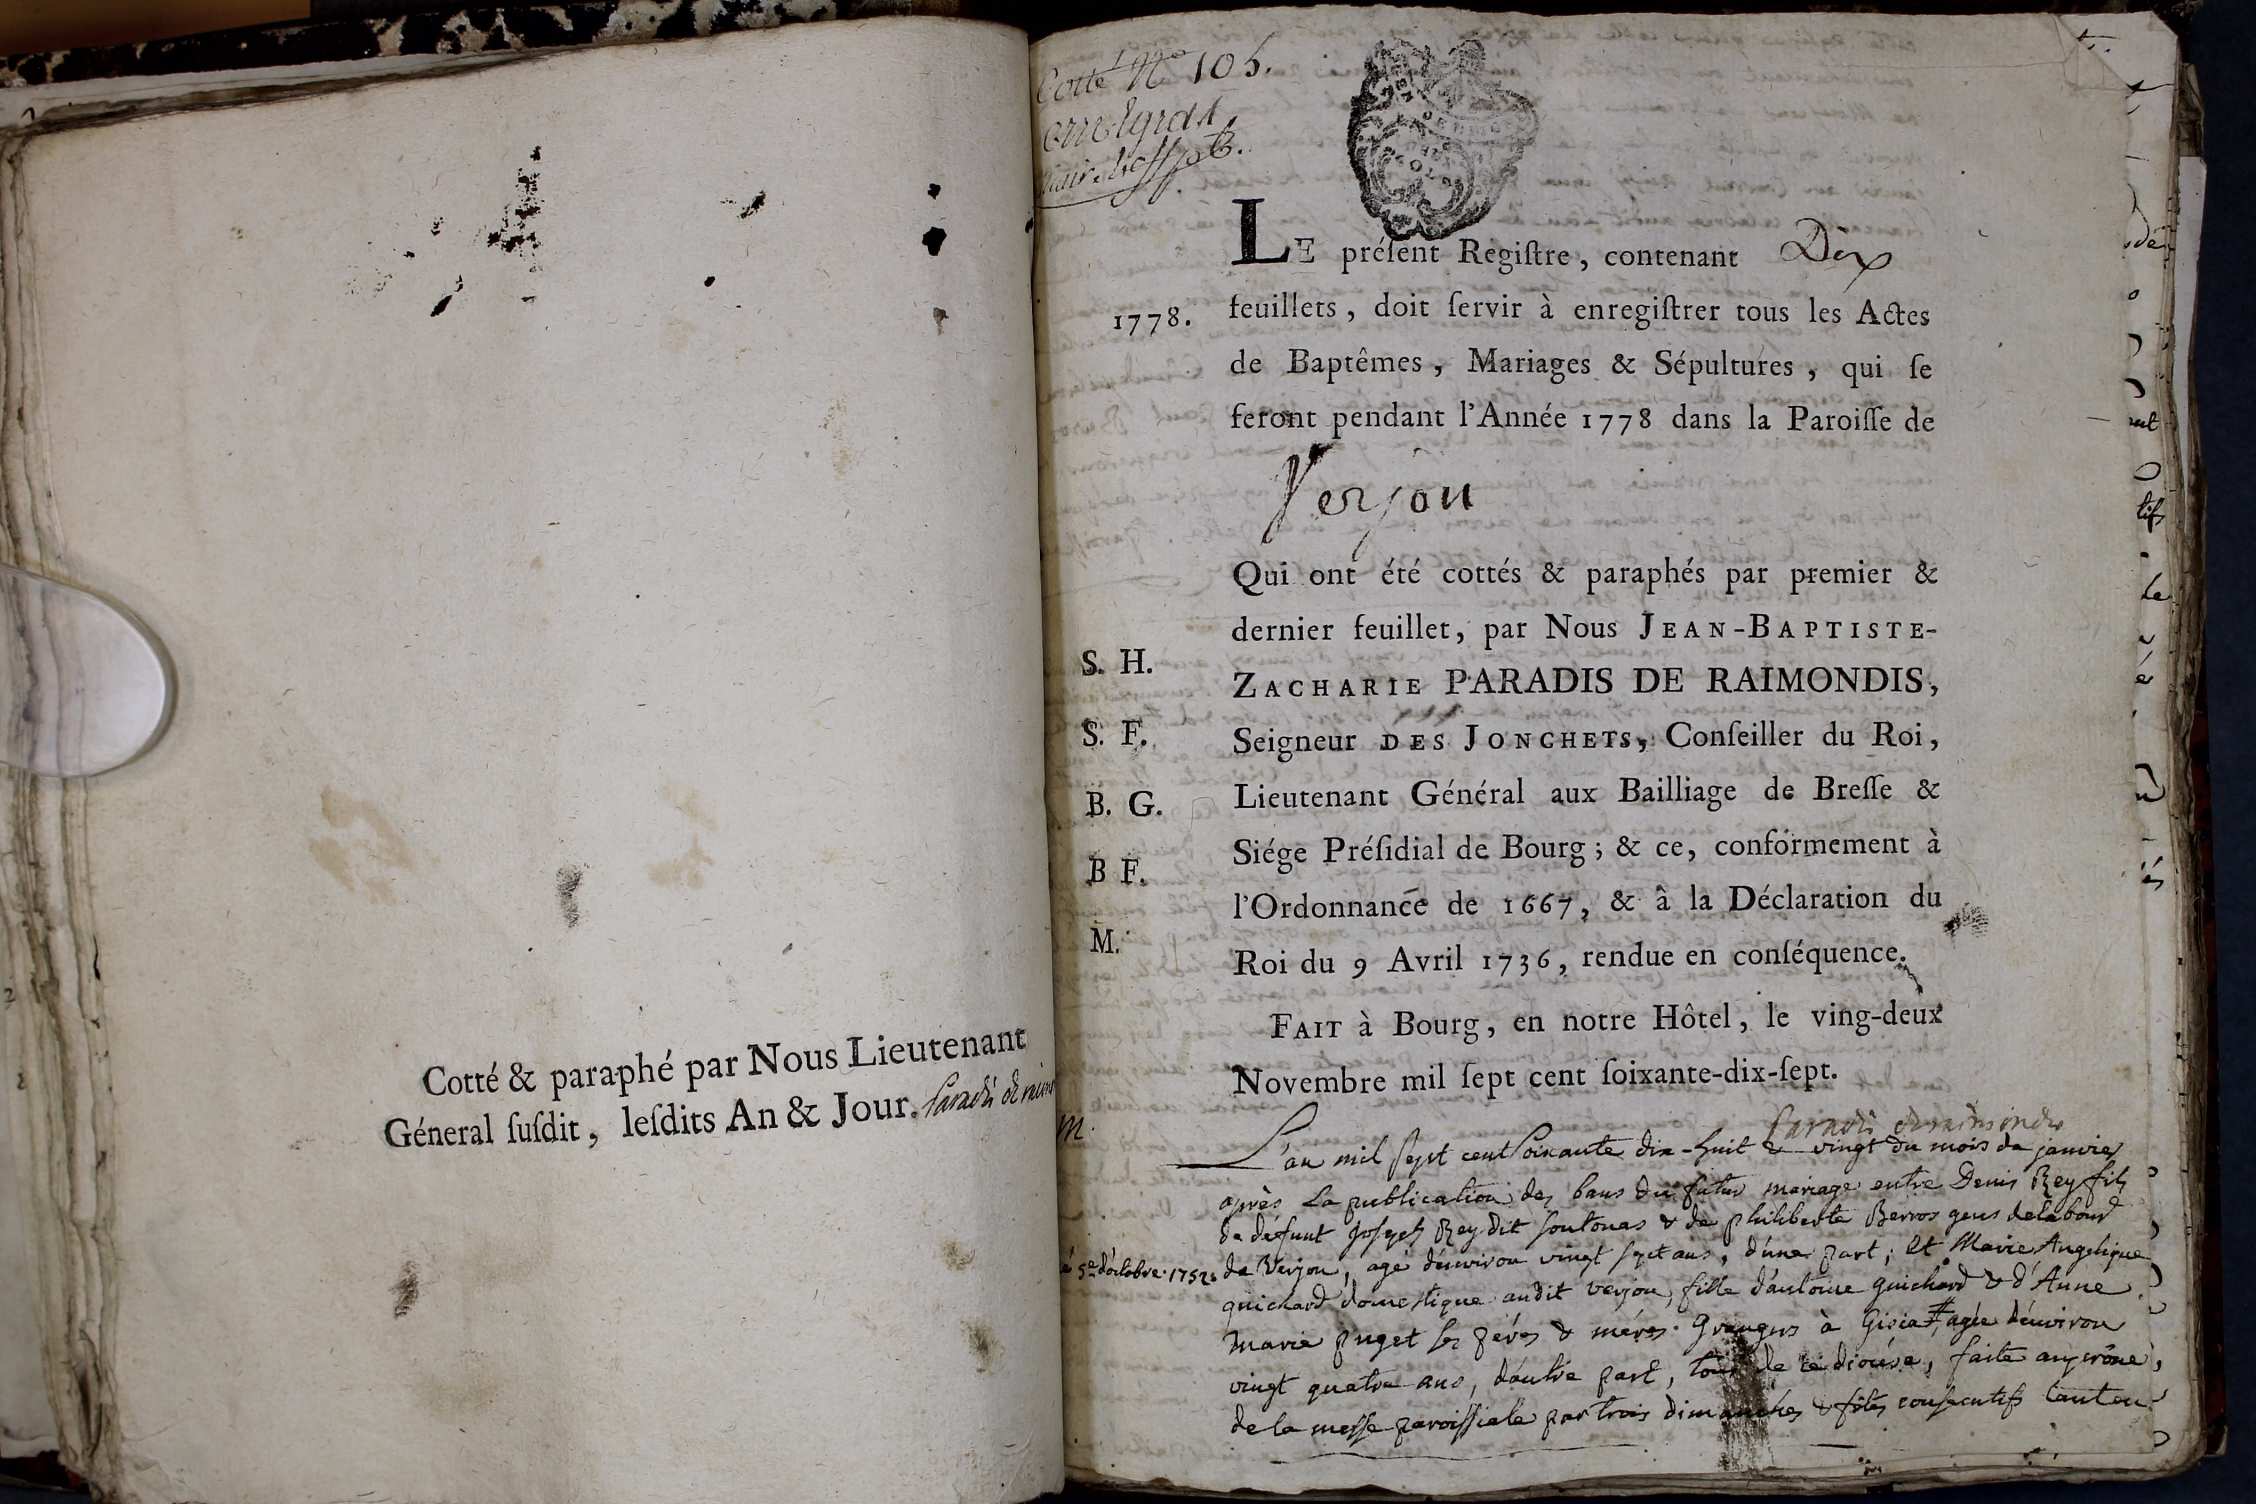 Cotté & paraphé par Nous Lieutenant
Géneral ſuſdit, leſdits An & Jour. Paradis de raimo
Cotté Nº 105.
LE préſent Regiſtre, contenant Dix
1778.
feuillets, doit ſervir à enregiſtrer tous les Actes
de Baptêmes, Mariages & Sépultures, qui ſe
feront pendant l'Année 1778 dans la Paroiſſe de
Verjon
Qui ont été cottés & paraphés par premier &
dernier feuillet, par Nous JEAN-BAPTISTE-
ZACHARIE PARADIS DE RAIMONDIS,
Seigneur DES JONCHETS, Conſeiller du Roi,
Lieutenant Général aux Bailliage de Breſſe &
Siége Préſidial de Bourg; & ce, conformement à
l'Ordonnance de 1667, & â la Déclaration du
Roi du 9 Avril 1736, rendue en conſéquence.
FAIT à Bourg, en notre Hôtel, le ving-deux
Novembre mil ſept cent ſoixante-dix-ſept.
S. H.
S. F.
B. G.
B F.
M.
Paradis de raimondis
m.
L'an mil sept cent soixante dix-huit & vingt du mois de janvier
après la publication des bans du futur mariage entre Denis Rey fils
de défunt Joseph Rey dit soutonas & de philiberte Berros gens de labour
de Verjon, agé d'environ vingt sept ans, d'une part; Et Marie Angelique
5e d'octobre 1752
guichard domestique audit verjon, fille d'antoine guichard & d'Anne
marie puget ses péres & méres grangers à Gisia # agée d'environ
vingt quatre ans, d'autre part, tous de ce diocése, faite au prône
de la messe paroissiale par trois dimanches & fêtes consecutifs tant en